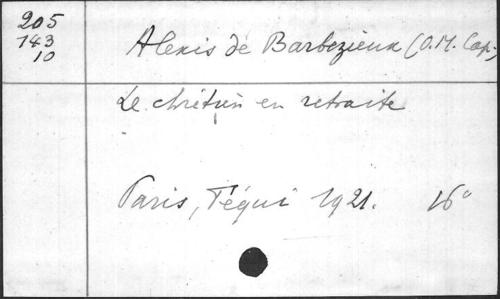 205
143
10
Alexis de Barbezieux (O.M. Cap.)
Le chrétien en retraite
Paris, Téqui 1921. 16°